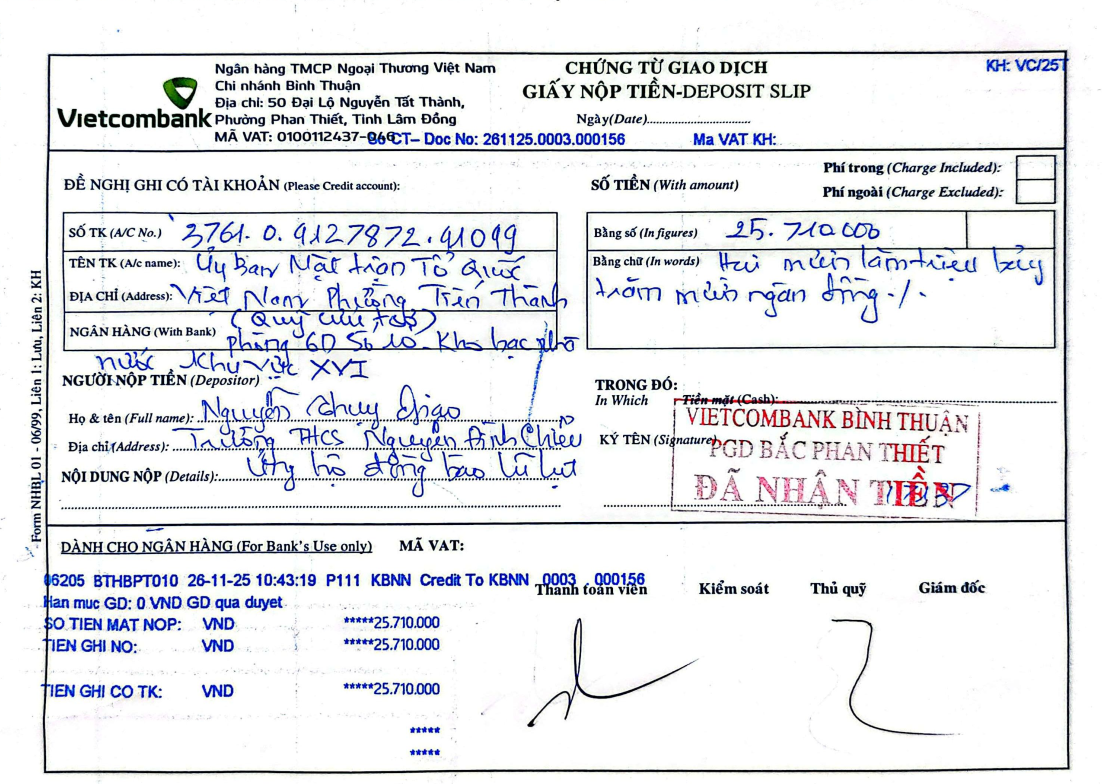 Ngân hàng TMCP Ngoại Thương Việt Nam
Chi nhánh Bình Thuận
Địa chỉ: 50 Đại Lộ Nguyễn Tất Thành,
Phường Phan Thiết, Tỉnh Lâm Đồng
MÃ VAT: 0100112437-046
Vietcombank
CHỨNG TỪ GIAO DỊCH
GIẤY NỘP TIỀN-DEPOSIT SLIP
Ngày(Date)
KH: VC/25T
So CT– Doc No: 261125.0003.000156
Ma VAT KH:
ĐỀ NGHỊ GHI CÓ TÀI KHOẢN (Please Credit account):
SỐ TIỀN (With amount)
Phí trong (Charge Included):
Phí ngoài (Charge Excluded):
SỐ TK (A/C No.) 3761.0.9127872.91099
TÊN TK (A/c name): Ủy ban Mặt trận Tổ Quốc
ĐỊA CHỈ (Address): Việt Nam Phường Tiến Thành
(Quỹ cứu trợ)
NGÂN HÀNG (With Bank) Phòng GD Số 10 - Kho bạc nhà
nước Khu vực XVI
Bằng số (In figures) 25.710.000
Bằng chữ (In words) Hai mươi lăm triệu bảy
trăm mười ngàn đồng./.
NGƯỜI NỘP TIỀN (Depositor)
Họ & tên (Full name): Nguyễn Thụy Giao
Địa chỉ (Address): Trường THCS Nguyễn Đình Chiểu
NỘI DUNG NỘP (Details): Ủng hộ đồng bào lũ lụt
TRONG ĐÓ:
In Which Tiền mặt (Cash):
KÝ TÊN (Signature)
VIETCOMBANK BÌNH THUẬN
PGD BẮC PHAN THIẾT
ĐÃ NHẬN TIỀN
Form NHBL 01 - 06/99, Liên 1: Lưu, Liên 2: KH
DÀNH CHO NGÂN HÀNG (For Bank's Use only) MÃ VAT:
06205 BTHBPT010 26-11-25 10:43:19 P111 KBNN Credit To KBNN 0003 000156
Han muc GD: 0 VND GD qua duyet
SO TIEN MAT NOP: VND *****25.710.000
TIEN GHI NO: VND *****25.710.000
TIEN GHI CO TK: VND *****25.710.000
*****
*****
Thanh toán viên Kiểm soát Thủ quỹ Giám đốc